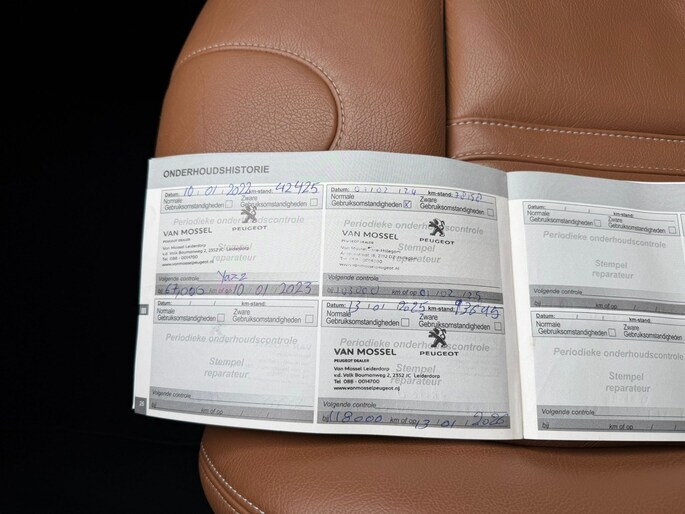 ONDERHOUDSHISTORIE
Datum: 10 / 01 / 2022 km-stand: 42425
Normale Gebruiksomstandigheden
Zware Gebruiksomstandigheden
Periodieke onderhoudscontrole
VAN MOSSEL
PEUGEOT
PEUGEOT DEALER
Van Mossel Leiderdorp
Tel 088 - 0014700
Stempel
reparateur
Volgende controle
bij 67,000 10 01 2023
Datum: / / km-stand:
Normale Gebruiksomstandigheden
Zware Gebruiksomstandigheden
Periodieke onderhoudscontrole
Stempel
reparateur
Volgende controle
bij km of op / /
Datum: km-stand:
Normale Gebruiksomstandigheden
Zware Gebruiksomstandigheden
Periodieke onderhoudscontrole
VAN MOSSEL
PEUGEOT
Stempel
reparateur
Volgende controle
bij km of op
Datum: 13 / 01 / 2025 km-stand: 93645
Normale Gebruiksomstandigheden
Zware Gebruiksomstandigheden
Periodieke onderhoudscontrole
VAN MOSSEL
PEUGEOT
PEUGEOT DEALER
Van Mossel Leiderdorp
v.d. Valk Boumanweg 2, 2352 JC Leiderdorp
Tel 088 - 0014700
www.vanmosselpeugeot.nl
Stempel
reparateur
Volgende controle
bij 118.000 km of op 13 / 01 / 2026
Datum: / / km-stand:
Normale Gebruiksomstandigheden
Zware
Gebruiksomst
Periodieke onderhoudscont
Stempel
reparateur
Volgende controle
bij km of op /
Datum: / / km-stand:
Normale Gebruiksomstandigheden
Zware
Gebruiksom
Periodieke onderhoudscont
Stempel
reparateur
Volgende controle
bij km of op /